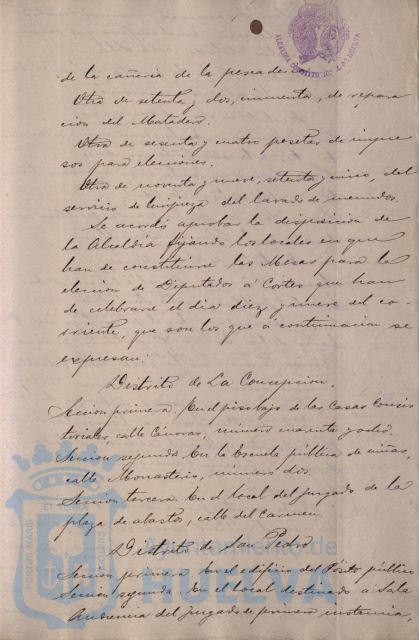 ALCALDIA CONSTITUCIONAL DE HUELVA
de la cañeria de la pescaderia
Otra de setenta y dos, cincuenta, de repara
cion del Matadero.
Otra de sesenta y cuatro pesetas de impre
sos para elecciones.
Otra de noventa y nueve, setenta y cinco, del
servicio de limpieza del lavado de menudos.
Se acordó aprobar la disposicion de
la Alcaldia fijando los locales en que
han de constituirse las Mesas para la
eleccion de Diputados á Cortes que han
de celebrarse el dia diez y nueve del co-
rriente, que son los que á continuacion se
expresan:
Distrito de La Concepcion.
Seccion primera. En el piso bajo de las Casas Consis
toriales, calle Cánovas, número cuarenta y ocho.
Seccion segunda. En la Escuela pública de niñas,
calle Monasterio, número dos.
Seccion tercera. En el local del juzgado de la
plaza de abastos, calle del Carmen.
Distrito de San Pedro
Seccion primera. En el edificio del Pósito público
Seccion segunda. En el local destinado á Sala
Audiencia del Juzgado de primera instancia
PORTUS MARIS ET TERRAE CUSTODIA
Ayuntamiento de
HUELVA